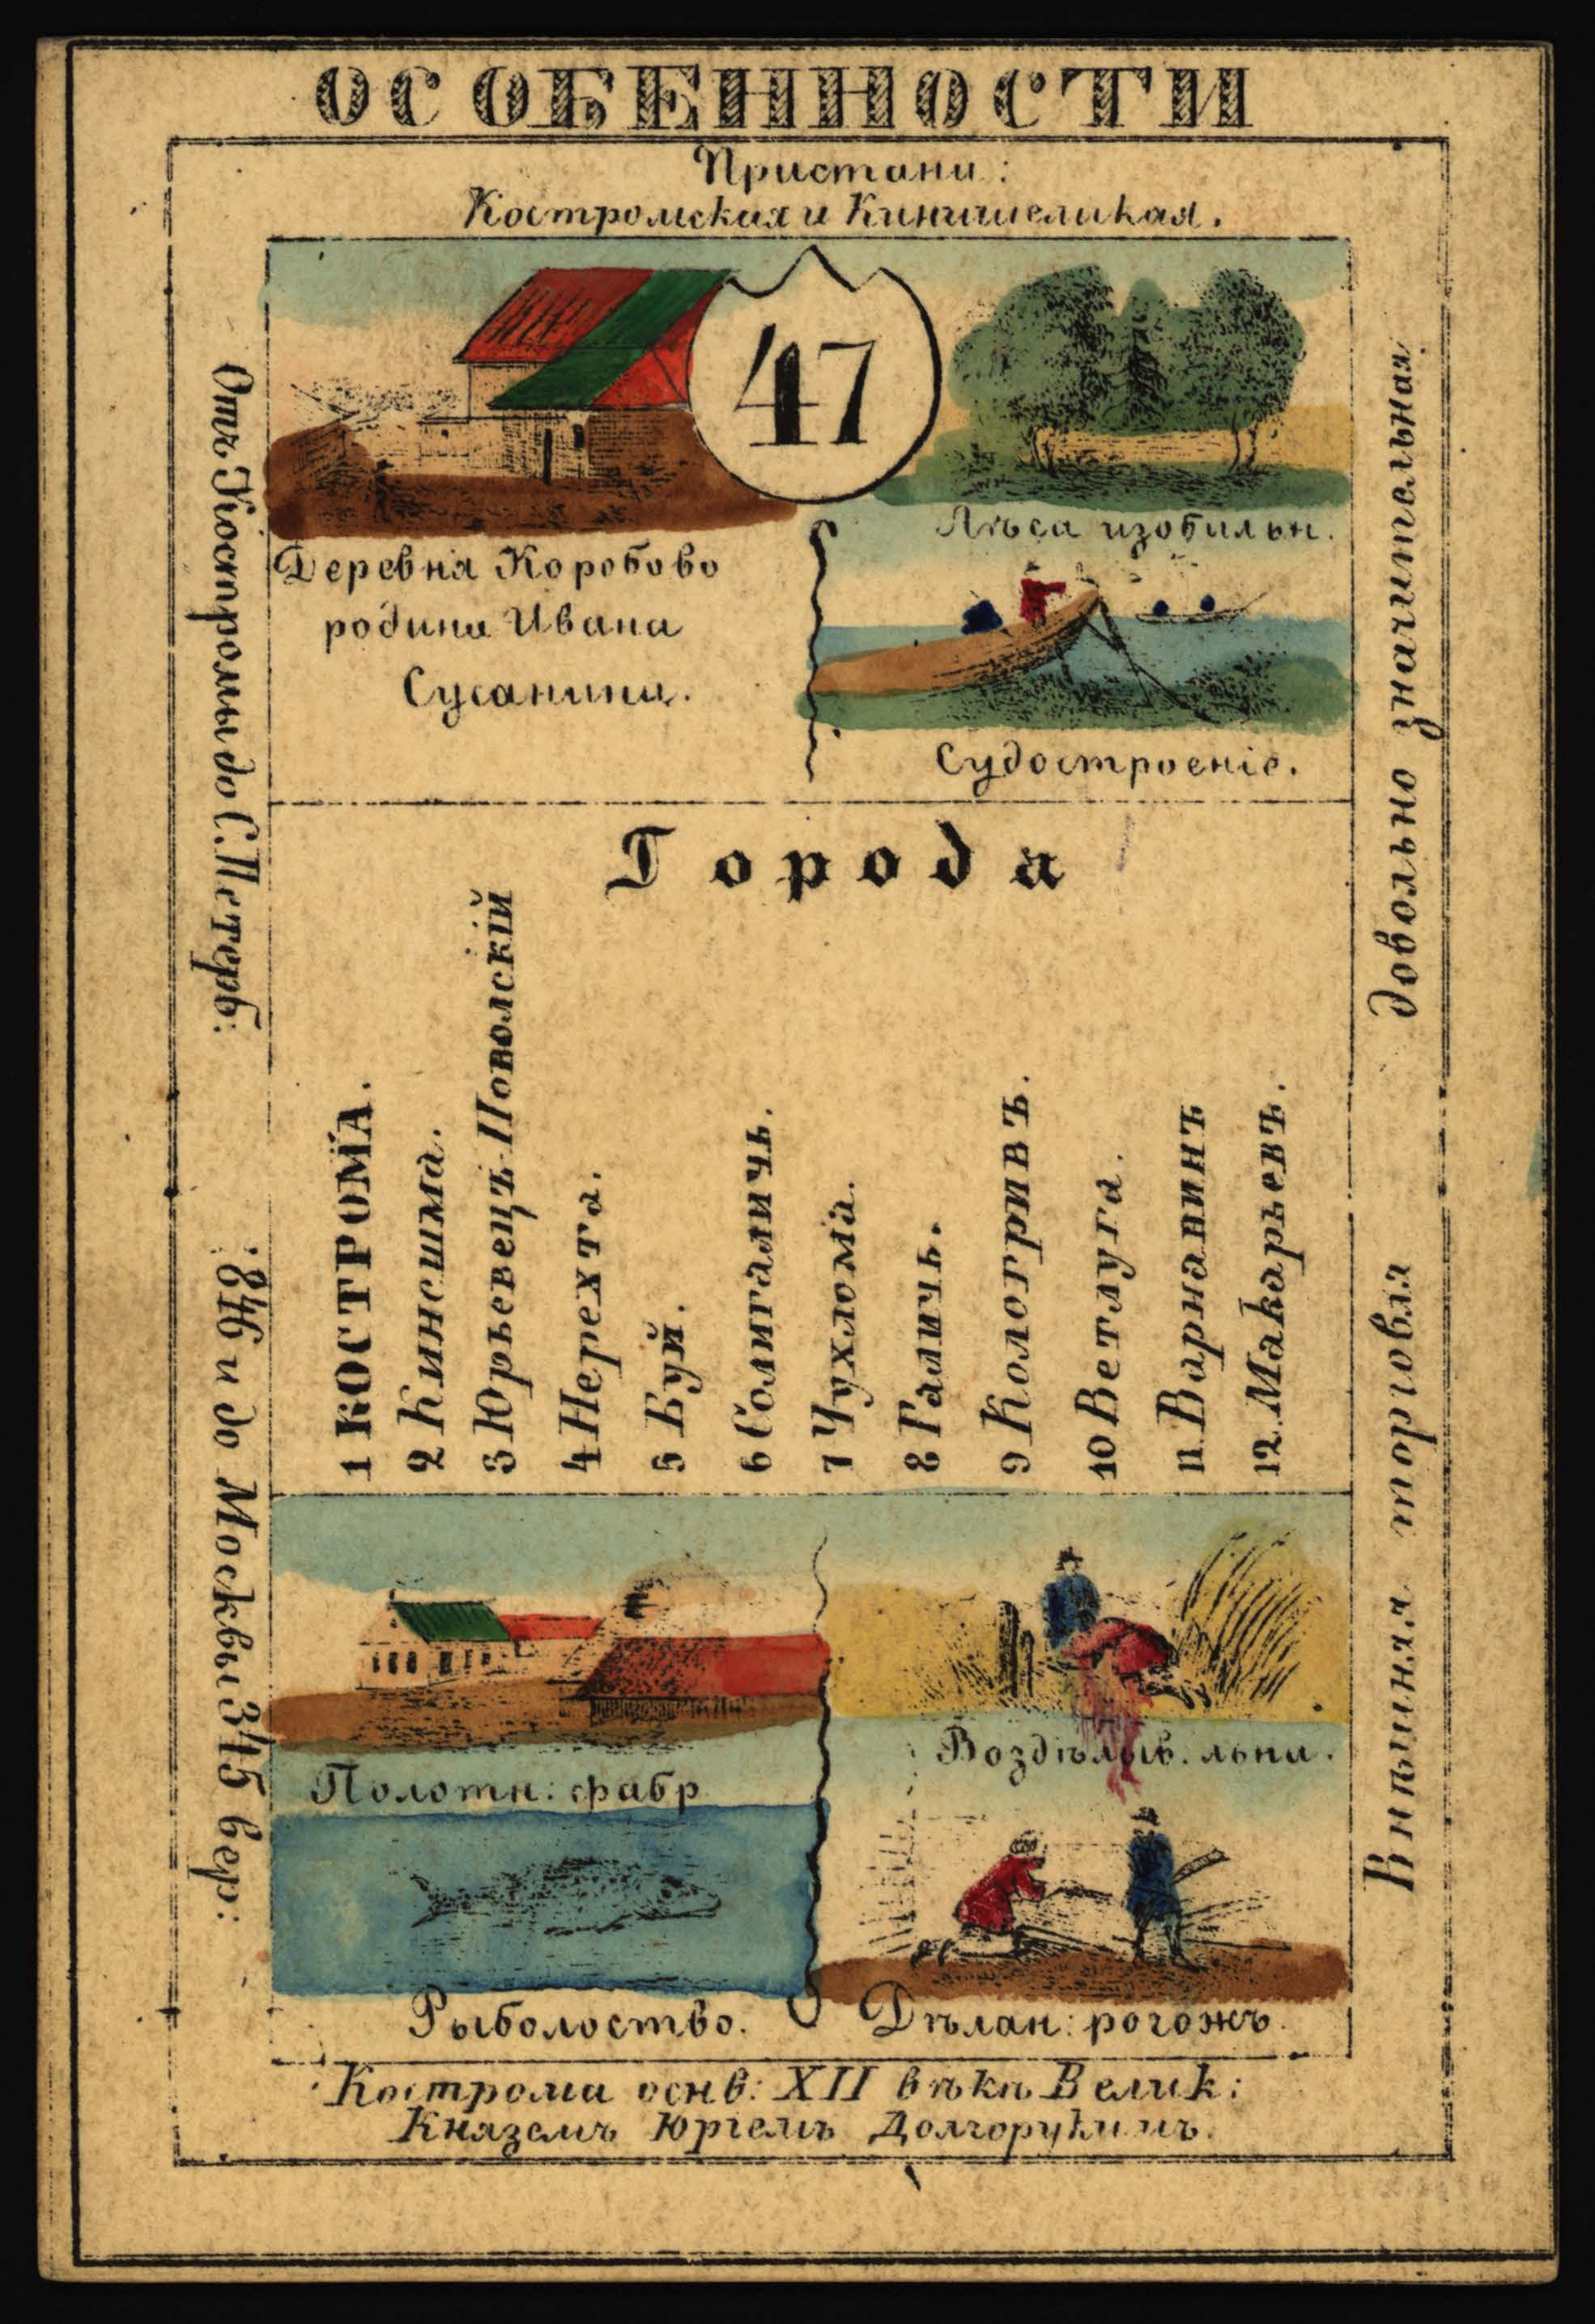 ОСОБЕННОСТИ
Пристани:
Костромская и Кинишемская.
47
Деревня Коробово
родина Ивана
Сусанина.
Лѣса изобильн.
Судостроеніе.
Города
1 КОСТРОМА.
2 Кинешма.
3 Юрьевецъ-Поволскій
4 Нерехта.
5 Буй.
6 Солигаличь.
7 Чухлома.
8 Галичь.
9 Кологривъ.
10 Ветлуга.
11 Варнавинъ
12 Макарьевъ.
Полотн: фабр
Воздѣлыв. льна.
Рыболоство.
Дѣлан: рогожъ.
Кострома оснв: XII вѣкѣ Велик:
Княземъ Юріемъ Долгорукимъ.
Отъ Костромы до С. Петерб:
846 и до Москвы 345 вер:
Внѣшняя торговля довольно значительная